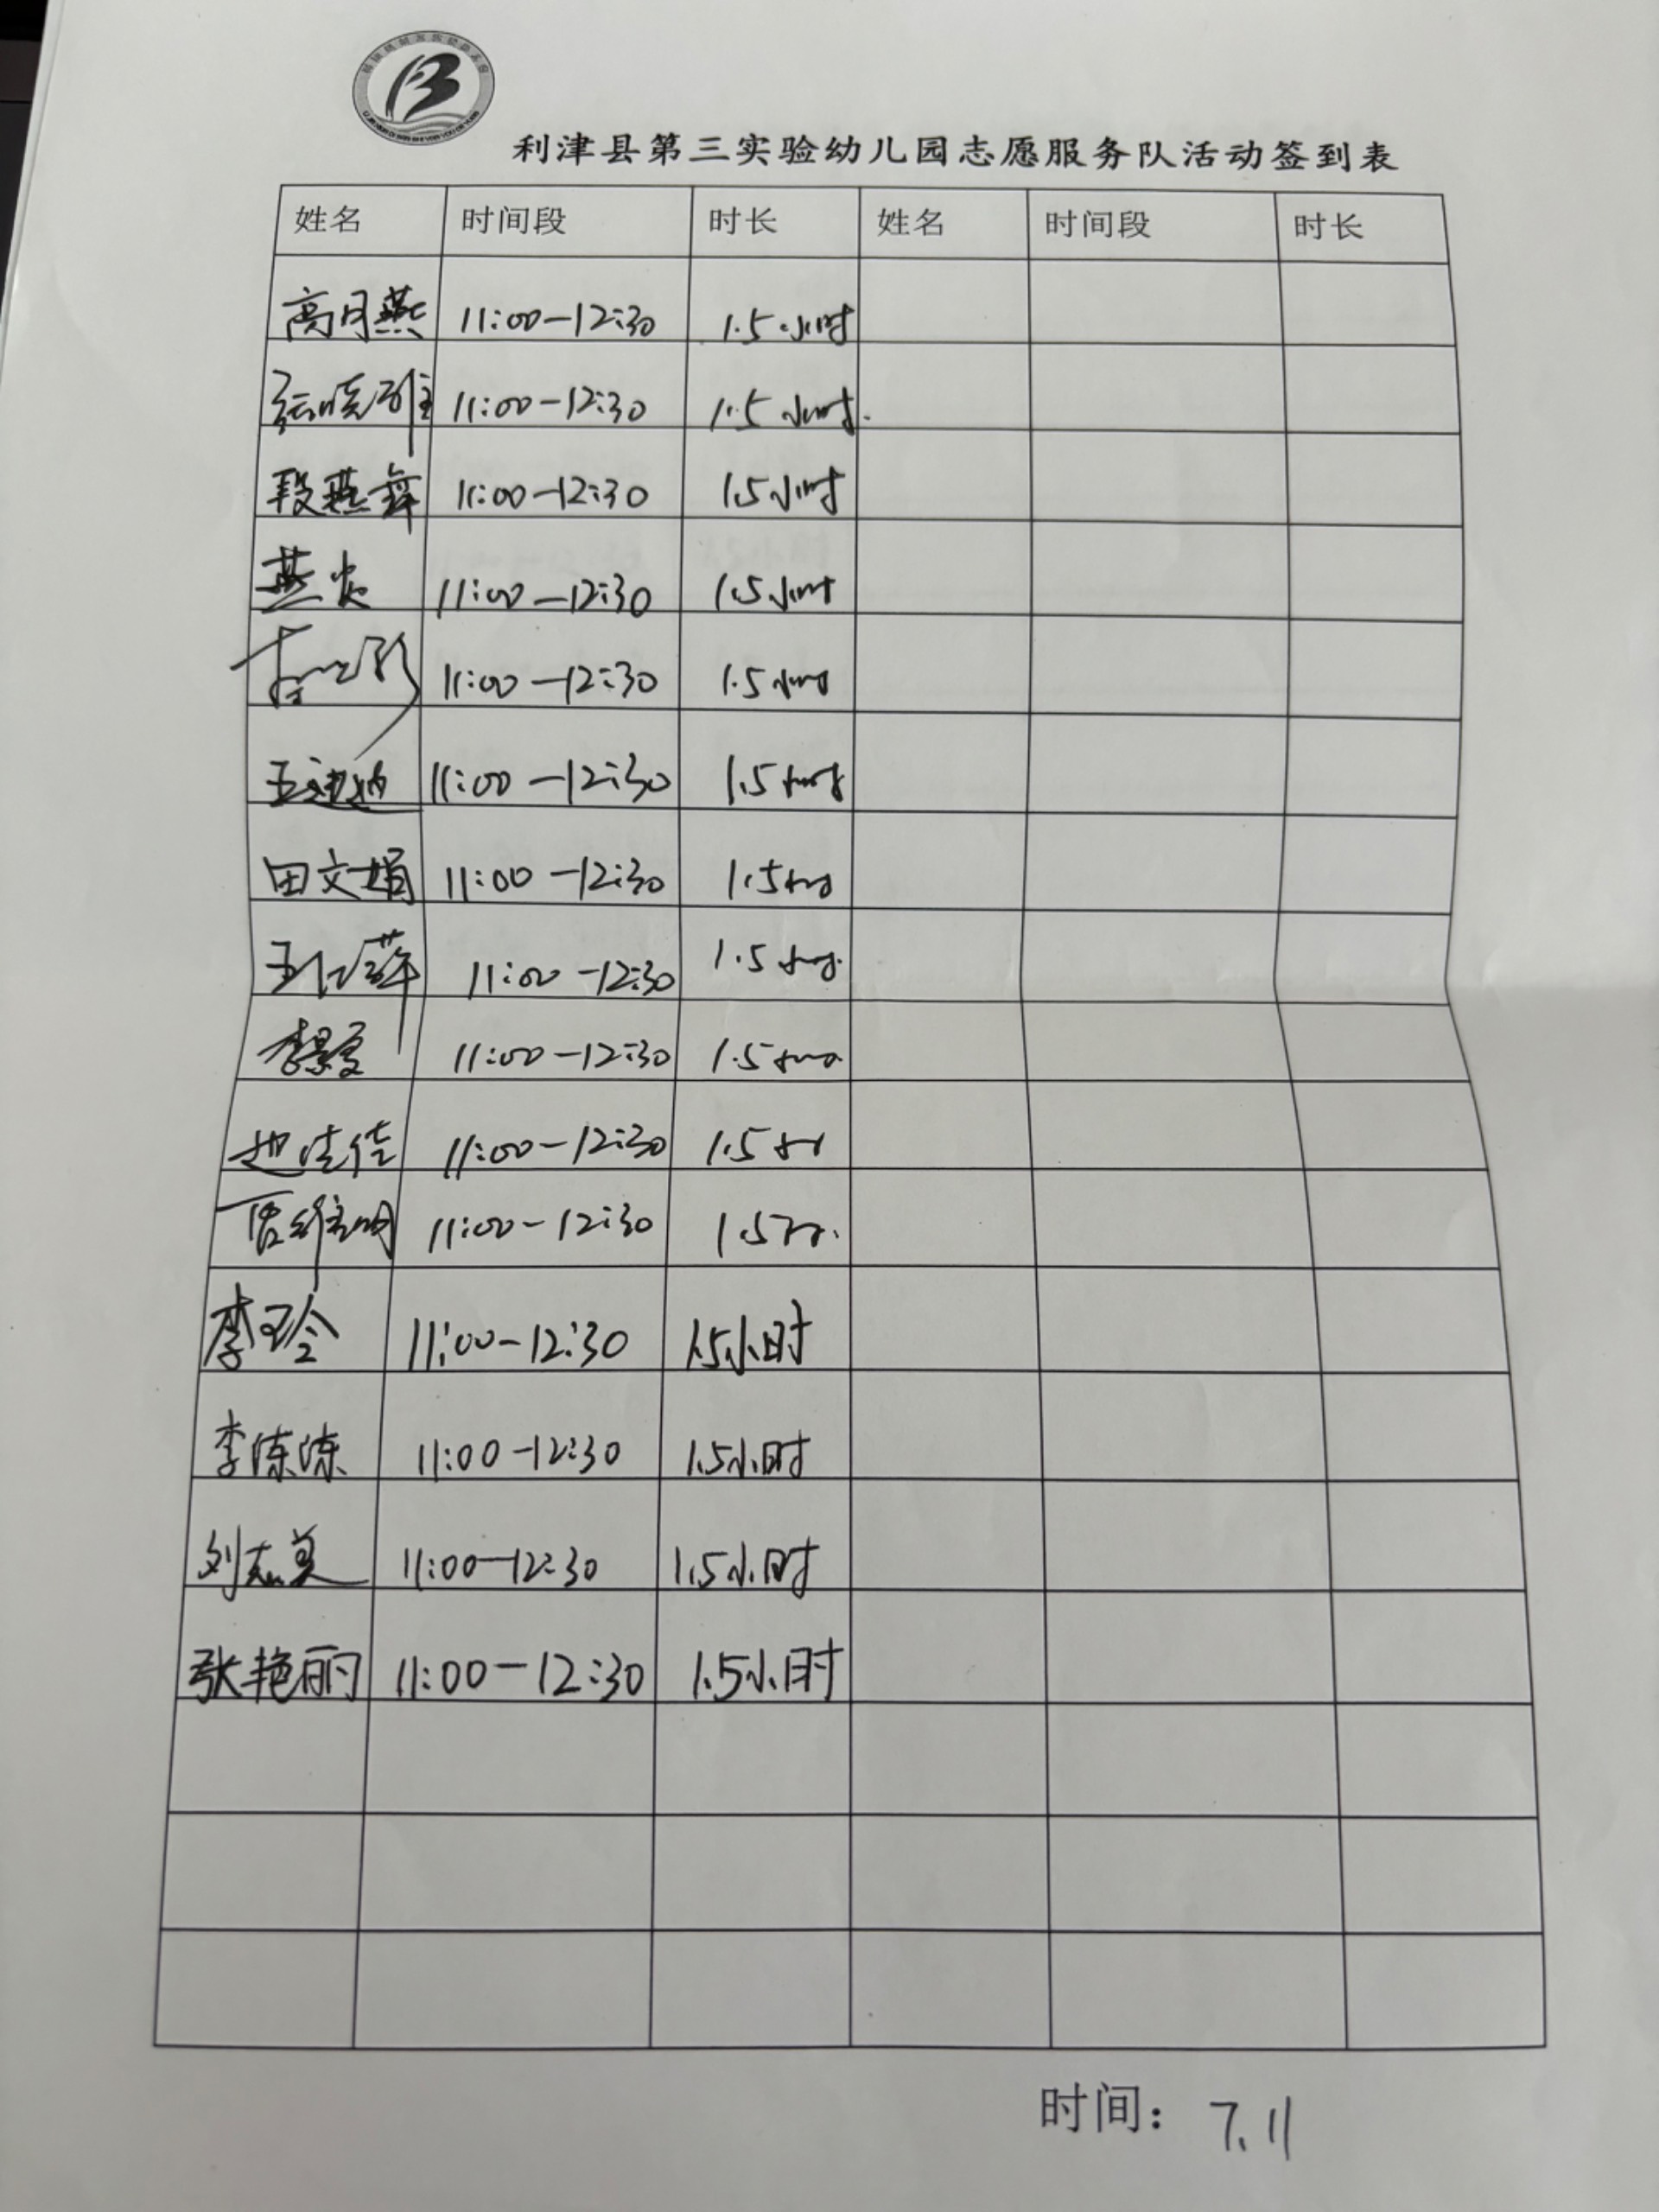 利津县第三实验幼儿园志愿服务队活动签到表
姓名 时间段 时长 姓名 时间段 时长
高月燕 11:00—12:30 1.5小时
11:00—12:30 1.5小时.
段燕舞 11:00—12:30 1.5小时
燕 11:00—12:30 1.5小时
11:00—12:30 1.5小时
王 11:00—12:30 1.5小时
田文娟 11:00—12:30 1.5小时
王 11:00—12:30 1.5小时.
李景夏 11:00—12:30 1.5小时
赵佳佳 11:00—12:30 1.5小时
11:00—12:30 1.5
李玲 11:00—12:30 1.5小时
李涑涑 11:00—12:30 1.5小时
刘志美 11:00—12:30 1.5小时
张艳丽 11:00—12:30 1.5小时
时间：7.11